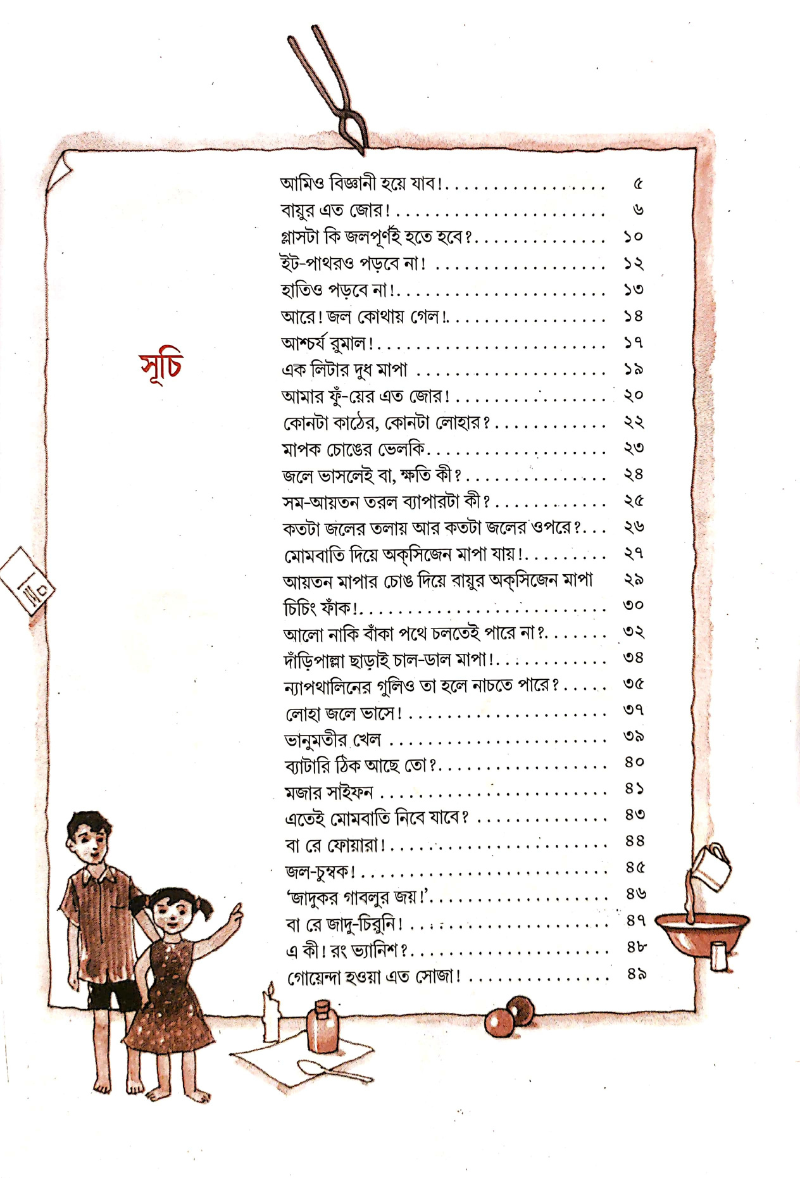 সূচি
আমিও বিজ্ঞানী হয়ে যাব!. . . . . . . . . . . . . . . . . ৫
বায়ুর এত জোর! . . . . . . . . . . . . . . . . . . . . . . ৬
গ্লাসটা কি জলপূর্ণই হতে হবে?. . . . . . . . . . . . . . ১০
ইট-পাথরও পড়বে না! . . . . . . . . . . . . . . . . . . ১২
হাতিও পড়বে না!. . . . . . . . . . . . . . . . . . . . . . ১৩
আরে! জল কোথায় গেল!. . . . . . . . . . . . . . . . . ১৪
আশ্চর্য রুমাল!. . . . . . . . . . . . . . . . . . . . . . . . ১৭
এক লিটার দুধ মাপা . . . . . . . . . . . . . . . . . . . . ১৯
আমার ফুঁ-য়ের এত জোর! . . . . . . . . . . . . . . . . ২০
কোনটা কাঠের, কোনটা লোহার? . . . . . . . . . . . . ২২
মাপক চোঙের ভেলকি. . . . . . . . . . . . . . . . . . . ২৩
জলে ভাসলেই বা, ক্ষতি কী? . . . . . . . . . . . . . . . ২৪
সম-আয়তন তরল ব্যাপারটা কী? . . . . . . . . . . . . ২৫
কতটা জলের তলায় আর কতটা জলের ওপরে?. . . ২৬
মোমবাতি দিয়ে অক্‌সিজেন মাপা যায়!. . . . . . . . . ২৭
আয়তন মাপার চোঙ দিয়ে বায়ুর অক্‌সিজেন মাপা ২৯
চিচিং ফাঁক!. . . . . . . . . . . . . . . . . . . . . . . . . . ৩০
আলো নাকি বাঁকা পথে চলতেই পারে না?. . . . . . . ৩২
দাঁড়িপাল্লা ছাড়াই চাল-ডাল মাপা!. . . . . . . . . . . . ৩৪
ন্যাপথালিনের গুলিও তা হলে নাচতে পারে? . . . . . ৩৫
লোহা জলে ভাসে! . . . . . . . . . . . . . . . . . . . . . ৩৭
ভানুমতীর খেল . . . . . . . . . . . . . . . . . . . . . . . ৩৯
ব্যাটারি ঠিক আছে তো?. . . . . . . . . . . . . . . . . . ৪০
মজার সাইফন . . . . . . . . . . . . . . . . . . . . . . . . ৪১
এতেই মোমবাতি নিবে যাবে? . . . . . . . . . . . . . . ৪৩
বা রে ফোয়ারা!. . . . . . . . . . . . . . . . . . . . . . . ৪৪
জল-চুম্বক! . . . . . . . . . . . . . . . . . . . . . . . . . . ৪৫
‘জাদুকর গাবলুর জয়!’. . . . . . . . . . . . . . . . . . . ৪৬
বা রে জাদু-চিরুনি! . . . . . . . . . . . . . . . . . . . . . ৪৭
এ কী! রং ভ্যানিশ?. . . . . . . . . . . . . . . . . . . . . ৪৮
গোয়েন্দা হওয়া এত সোজা! . . . . . . . . . . . . . . . ৪৯